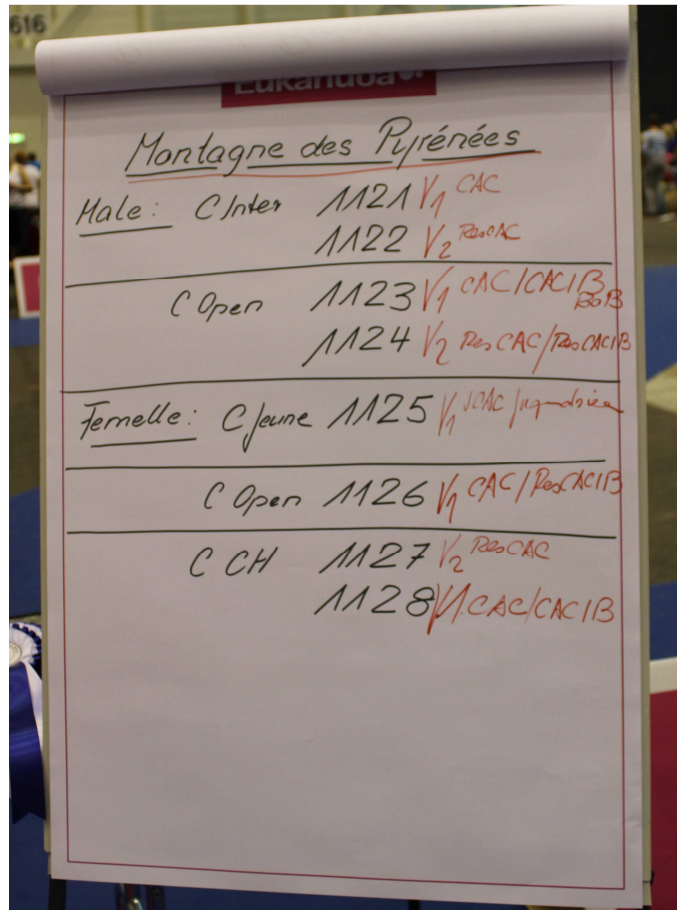 616
Eukanuba
Montagne des Pyrénées
Male: C Inter 1121 V1 CAC
1122 V2 ResCAC
C Open 1123 V1 CAC/CACIB
BOB
1124 V2 Res CAC/ResCACIB
Femelle: C Jeune 1125 V1 JCAC
C Open 1126 V1 CAC/ResCACIB
C CH 1127 V2 ResCAC
1128 V1 CAC/CACIB